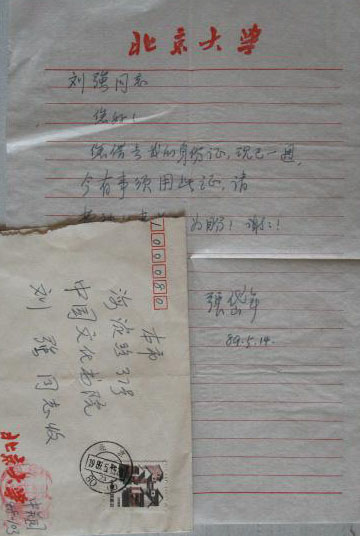 北京大学
刘强同志
您好！
您借去我的身份证，现已一週，
今有事须用此证，请
为盼！谢谢！
张岱年
89.5.14.
100080
本市
海淀路37号
中国文化书院
刘强同志收
北京大学